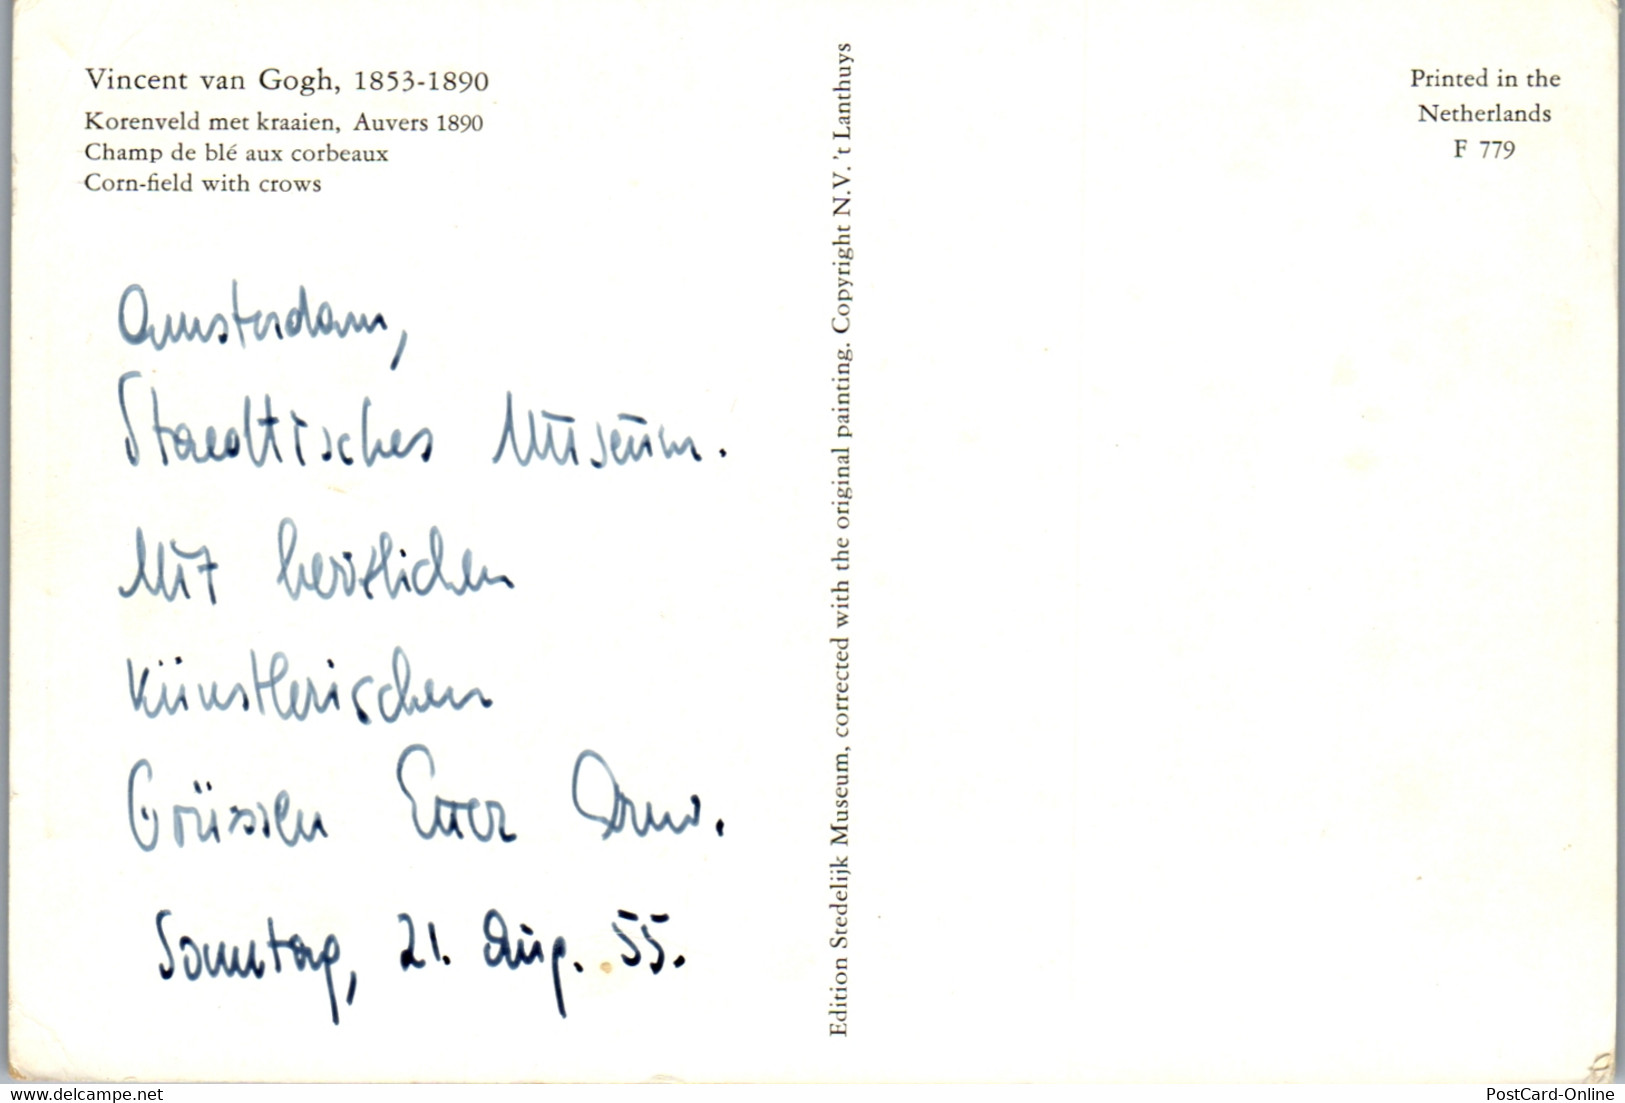 Vincent van Gogh, 1853-1890
Korenveld met kraaien, Auvers 1890
Champ de blé aux corbeaux
Corn-field with crows
Amsterdam,
Staedtisches Museum.
Mit herzlichen
künstlerischen
Grüssen Euer
Sonntag, 21. Aug. 55.
Edition Stedelijk Museum, corrected with the original painting. Copyright N.V. 't Lanthuys
Printed in the
Netherlands
F 779
the-best-of-all-collections.com
PostCard-Online